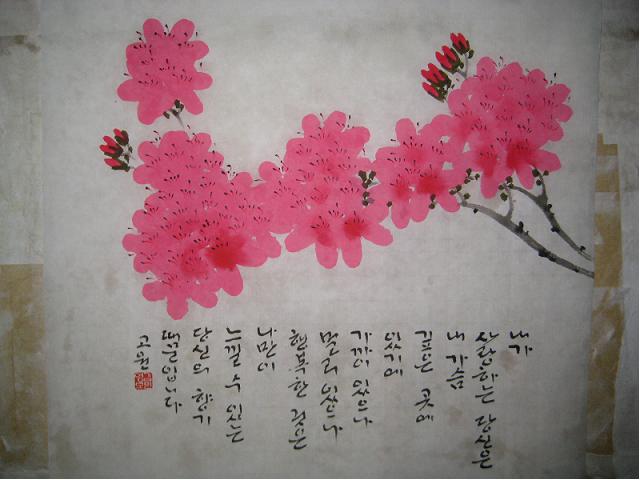 내가
사랑하는 당신은
내 가슴
깊은 곳에
있기에
가까이 있으나
멀리 있으나
행복한 것은
나만이
느낄 수 있는
당신의 향기
때문입니다